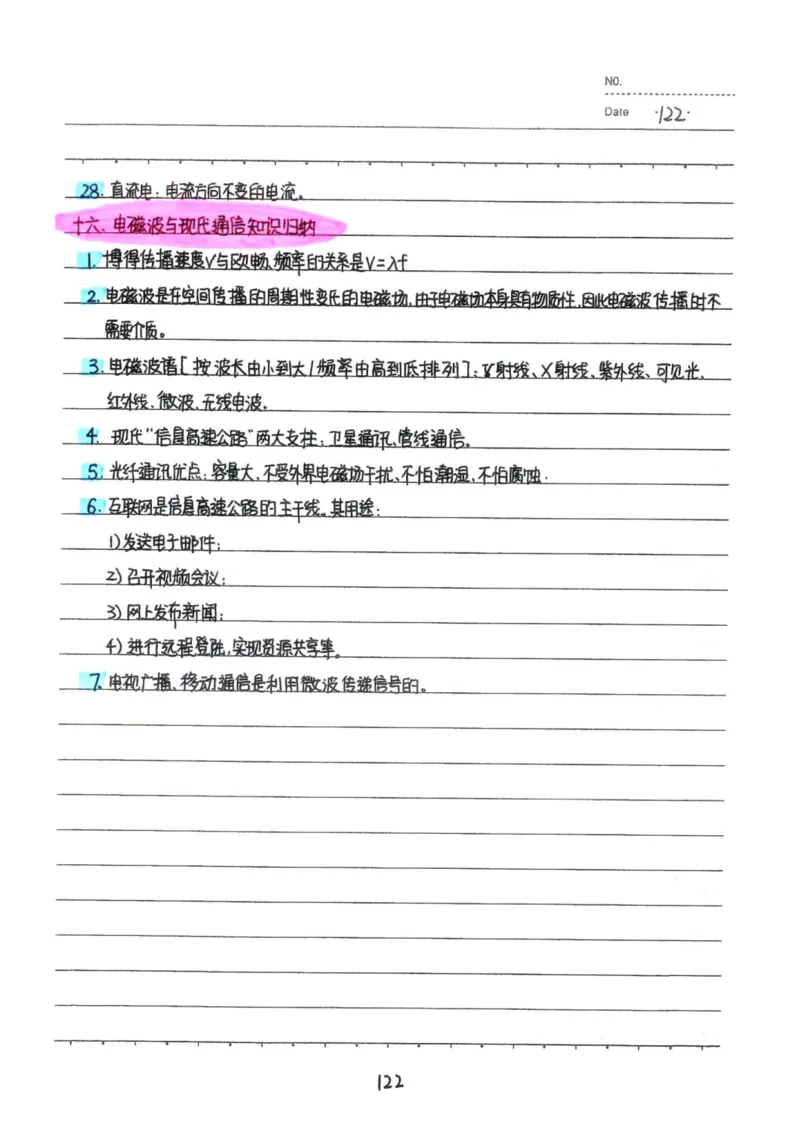 No.
Date ·122·
28. 直流电:电流方向不变的电流。
十六、电磁波与现代通信知识归纳
1. 博得传播速度V与欧畅、频率的关系是V=λf
2. 电磁波是在空间传播的周期性变化的电磁场,由于电磁场本身具有物质性,因此电磁波传播时不
需要介质。
3. 电磁波谱[按波长由小到大/频率由高到低排列]:γ射线、X射线、紫外线、可见光、
红外线、微波、无线电波。
4. 现代“信息高速公路”两大支柱:卫星通讯、管线通信。
5. 光纤通讯优点:容量大、不受外界电磁场干扰、不怕潮湿、不怕腐蚀.
6. 互联网是信息高速公路的主干线。其用途:
1)发送电子邮件;
2)召开视频会议;
3)网上发布新闻;
4)进行远程登陆,实现资源共享等。
7. 电视广播、移动通信是利用微波传递信号的。
122